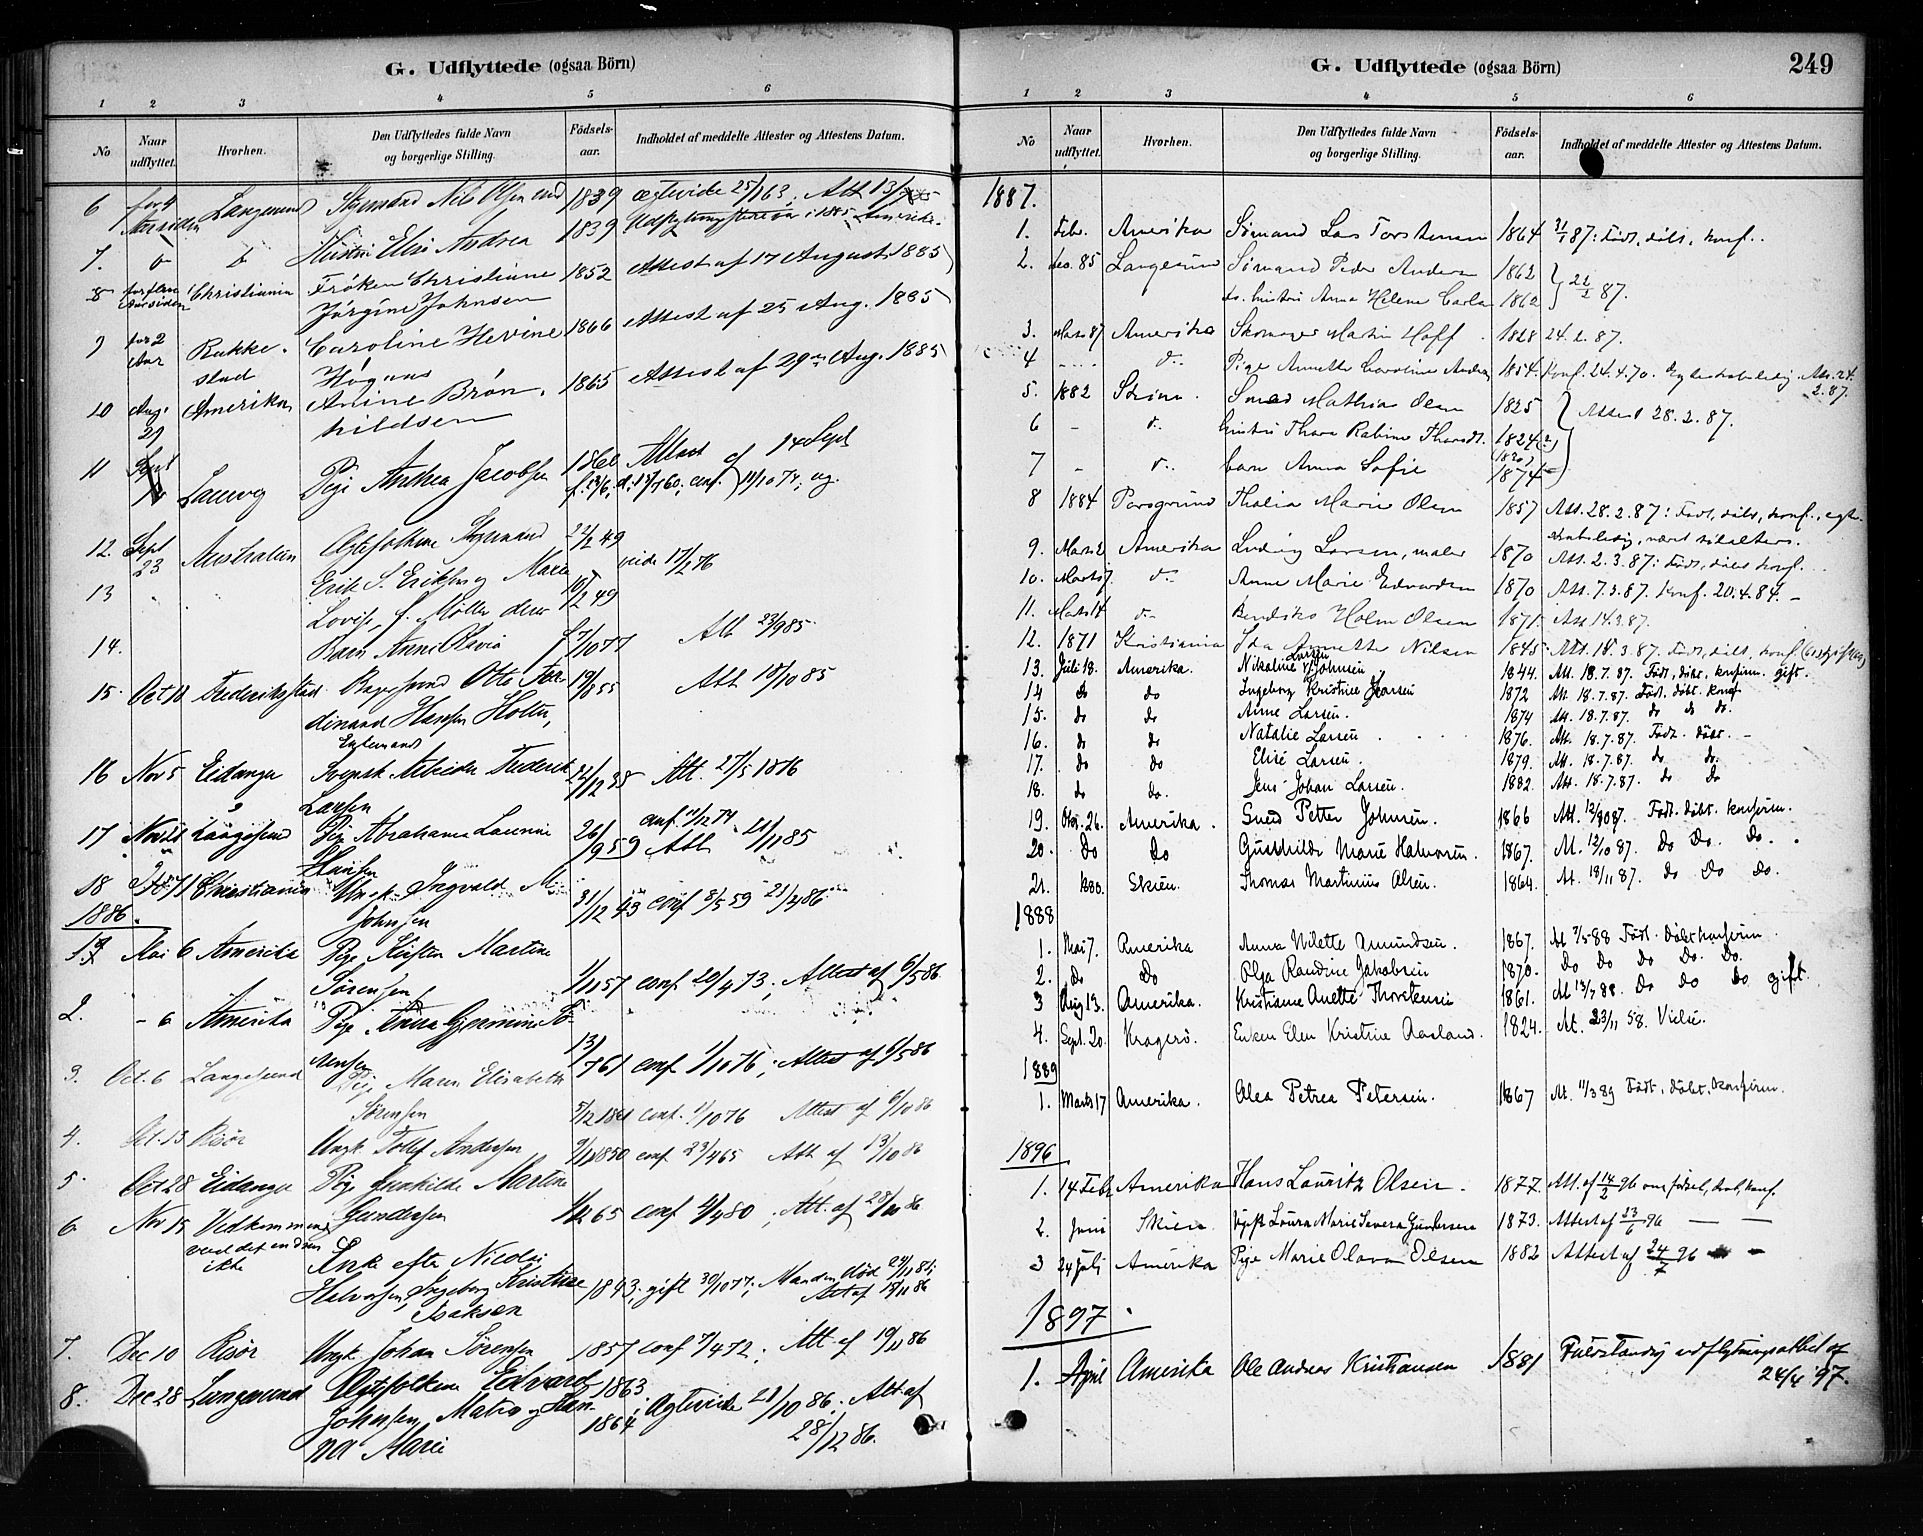 G. Udflyttede (ogsaa Börn)
1 2 3 4 5 6
No Naar udflyttet. Hvorhen. Den Udflyttedes fulde Navn og borgerlige Stilling. Födsels-aar. Indholdet af meddelte Attester og Attestens Datum.
6 for 4 Langesund Nils Olsen 1839 Att 13/
Aarsiden
7. Hustri Elise Andrea 1839 i 1885 Amerika
8 for flere Aarsiden Christiania Frøken Christiane 1852 Attest af 17 August 1885
Jørgine Johnsen
9 for 2 Aar Bakke- Caroline Hevine 1866 Attest af 25 Aug. 1885
stad Høgnes
10 Aug. 29 Amerika Anine Brön- 1865 Attest af 29 Aug. 1885
hildsen
11 Sept Laurvig Pige Anthea Jacobsen 1860 Attest af 14 Sept
12. Sept 23 Australien Ægtefolkene Styrmand 22/2 49
13 Erik S. Eriksen og Marie 10/2 49 viede 17/2 76
Lovise, f. Møller deres
14. Barn Anne Olavia 7/10 77 Att 23/9 85
15. Oct 18 Frederikstad Otto Fer- 19/ 55 Att 18/10 85
dinand Hansen Holter,
Englemands
16 Nov 5 Eidanger Svensk Arbeider Frederik 22/12 35 Att. 27/5 1876
Larsen
17 Nov 21 Langesund Pige Abrahama Laurine 26/9 59 Att 21/11 85
Hansen
18 Christiania Ungk. Ingvald M. 31/12 43 conf 8/5 59 21/12 86
1886. Johnsen
1 Mai 6 Amerika Pige Kirsten Martine
Sørensen 1/11 57 conf 20/4 73, Attest af 6/5 86
2. - 6 Amerika Pige Anna Gjermine Sø-
rensen 13/7 61 conf 1/10 76, Attest af 6/5 86
3. Oct. 6 Langesund Pige Maren Elisabeth
Sørensen 5/12 1861 conf. 1/10 76 Attest af 6/10 86
4. Oct. 13 Risör Ungk. Tollef Andersen 9/11 1850 conf 23/4 65 Att af 13/10 86
5. Oct 28 Eidanger Pige Gunhilde Martine
Gundersen 1/12 65 conf 4/4 80, Att. af 28/10 86
6 Nov 15 Vedkommende
ved det endnu ikke Enke efter Nicolai
Halvorsen, Ingeborg Kristine 1843, gift 30/10 77, Manden død 24/11 81,
Isaksen Att af 15/11 86
7. Dec 10 Risör Ungk. Johan Sørensen 1857 conf 7/4 72, Att af 10/11 86
8. Dec 28 Langesund Ægtefolkene Edvard 1863
Johnsen, Mater og Han- 1864 Ægteviede 21/10 86, Att af
na Marie 28/12 86.
G. Udflyttede (ogsaa Börn) 249
1 2 3 4 5 6
No Naar udflyttet. Hvorhen. Den Udflyttedes fulde Navn og borgerlige Stilling. Födsels-aar. Indholdet af meddelte Attester og Attestens Datum.
1887.
1. Febr. Amerika Sømand Lars Torstensen 1864 31/1 87: Født, døbt, konf.
2. Des. 85 Langesund Sømand Peder Andersen 1862
ds. hustri Anna Helene Carla 1862 22/2 87.
3. Marts 87 Amerika Skomager Martin Hoff 1828 24.2.87.
4 do. Pige Annette Caroline Andrea 1854 Konf. 24.4.70. Att. 24.2.87.
5. 1882 Skien. Smed Mathias Olsen 1825 Attest 28.2.87.
6 - do. hustri Thara Rabine Tharald. 1824(?)
7 - do. barn Anna Sofie 1874
8 1884 Porsgrund Thalia Marie Olsen 1857 Att. 28.2.87: Født, døbt, konf., egte-
skabsledig, været til alters.
9. Marts 2 Amerika Ludvig Larsen, maler 1870 Att. 2.3.87: Født, døbt konf.
10. Marts 7. do. Anne Marie Edvardsen 1870 Att. 7.3.87. Konf. 20.4.84. -
11. Marts 14 do. Bendiks Holm Olsen 1871. Att. 14.3.87.
12. 1871 Kristiania Ida Annette Nilsen 1845. Att. 18.3.87. Født, døbt, konf.
13. Juli 18. Amerika. Nikoline Larsen f. Johnsen 1844. Att. 18.7.87. Født, døbt, konfirm. gift.
14 do do Ingeborg Kristine Larsen 1872 Att. 18.7.87. Født. døbt. konf.
15. do do Anne Larsen. 1874 Att. 18.7.87. do do do.
16. do do Natalie Larsen 1876. Att. 18.7.87. Født. døbt. -
17. do do Elise Larsen. 1879. Att. 18.7.87. do do.
18. do do. Jens Johan Larsen. 1882 Att. 18.7.87. do do
19. Okt. 26. Amerika. Sned Petter Johnsen. 1866 Att. 12/10 87. Født. døbt. konfirm.
20. Do Do Gunhilde Marie Halvorsen. 1867. At. 12/10 87. Do Do. Do.
21. Skien. Thomas Martinius Olsen. 1864. At. 18/11 87. do Do Do.
1888
1. Mai 7. Amerika Anna Milette Amundsen. 1867. At 7/5 88 Født. døbt konfirm.
2. Do Do Olga Randine Jakobsen 1870. Do Do Do Do. Do.
3 Aug 13. Amerika. Kristiane Anette Thorstensen 1861. At 13/7 88. Do Do Do gift.
4. Sept. 20. Kragerö. Enken Elen Kristine Aasland. 1824. At. 23/11 58. Viede.
1889
1. Marts 17 Amerika. Olea Petrea Petersen. 1867 At. 11/3 89 Født. døbt. konfirm.
1896
1. 14 Febr Amerika Hans Lauritz Olsen. 1877. Att. af 14/2 96 om fødsel, daab, konf.
2. Juni Skien Ugift Laura Marie Severa Gundersen 1873. Attest af 23/6 96 — —
3 24 Juli Amerika Pige Marie Olava Olsen 1882 Attest af 24/7 96 - -
1897.
1. April Amerika Ole Andreas Kristiansen 1881 Fuldstændig udflytningsattest af
24/4 97.